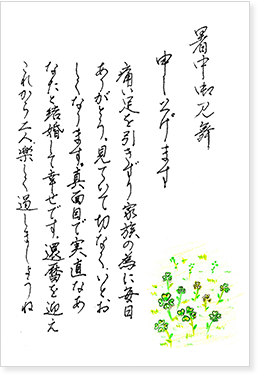 暑中御見舞
申し上げます
痛い足を引きずり家族の為に毎日
ありがとう。見ていて切なく、いとお
しくなります。真面目で実直なあ
なたと結婚して幸せです。還暦を迎え
これから二人楽しく過しましょうね